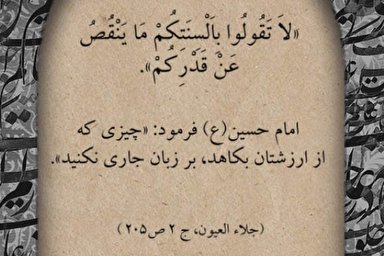 «لاَ تَقُولُوا بِاَلْسِنَتِكُمْ مَا يَنْقُصُ
عَنْ قَدْرِكُمْ».
امام حسین(ع) فرمود: «چیزی که
از ارزشتان بکاهد، بر زبان جاری نکنید».
(جلاء العیون، ج ۲ ص۲۰۵)